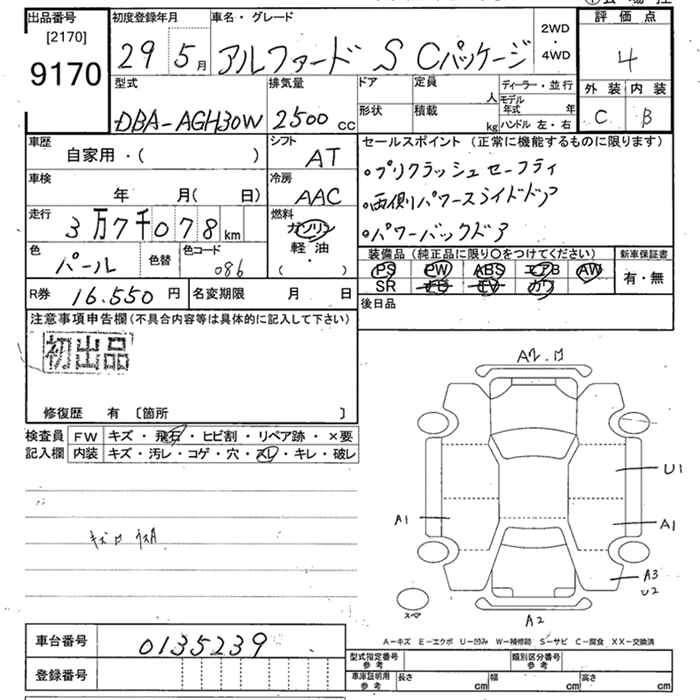 出品番号 初度登録年月 車名・グレード 評価点
[2170]
9170
29 5月 アルファード S Cパッケージ 2WD・4WD 4
型式 排気量 ドア 定員 人 ディーラー・並行 外装 内装
DBA-AGH30W 2500cc 形状 積載 kg モデル年式 年 ハンドル 左・右 C B
車歴 シフト セールスポイント (正常に機能するものに限ります)
自家用・( ) AT
・プリクラッシュセーフティ
車検 冷房
年 月( 日) AAC
・両側パワースライドドア
走行 燃料
3万7千078km ガソリン
・パワーバックドア
軽・油
( ・ )
色 パール 色替 色コード 086
装備品 (純正品に限り○をつけてください) 新車保証書
PS PW ABS エアB AW 有・無
SR ナビ TV カワ
R券 16.550円 名変期限 月 日
後日品
注意事項申告欄(不具合内容等は具体的に記入して下さい)
初出品
修復歴 有 〔箇所 〕
検査員 FW キズ・飛石・ヒビ割・リペア跡・×要
記入欄 内装 キズ・汚レ・コゲ・穴・スレ・キレ・破レ
U1
A1
A1
A3
U2
スペア
A2
A-キズ E-エクボ U-凹み W-補修跡 S-サビ C-腐食 XX-交換済
車台番号 0135239
登録番号
型式指定番号 参考 類別区分番号 参考
車庫証明用 参考 長さ cm 幅 cm 高さ cm